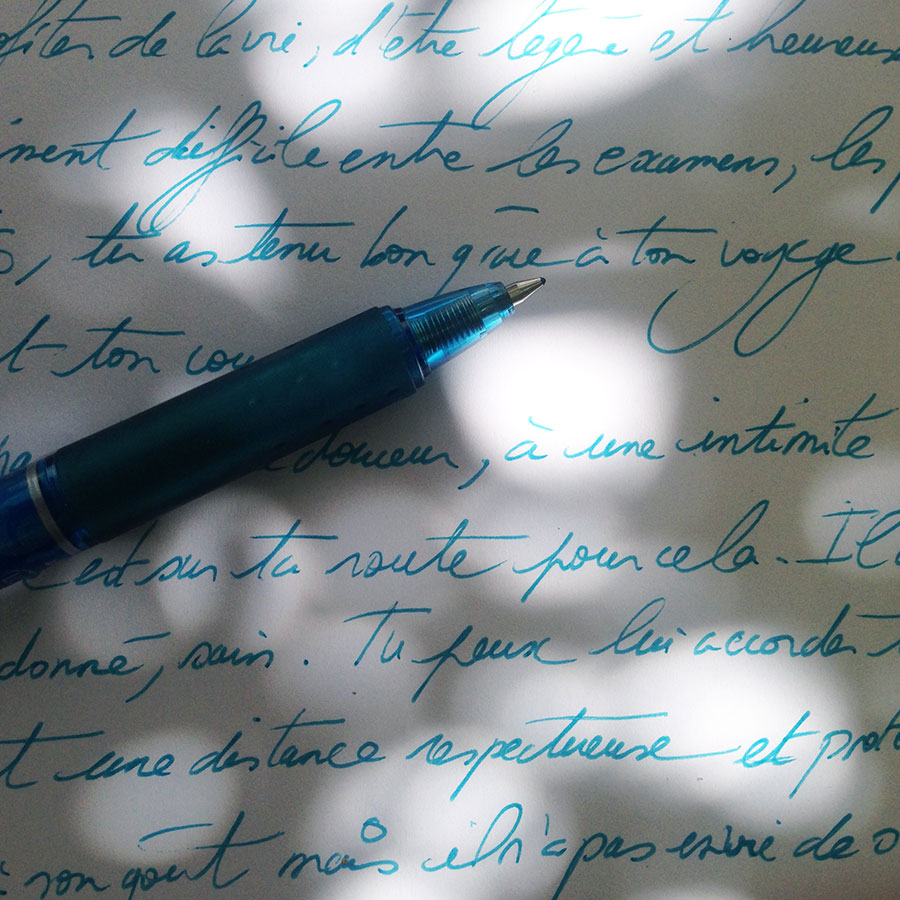 ofiter de la vie, d'être légère et heureus
iment difficile entre les examens, les p
s, tu as tenu bon grâce à ton voyage
t ton cou
douceur, à une intimité
c'est sur ta route pour cela. Il
donné, sain. Tu peux lui accorder
t une distance respectueuse et prot
son goût mais il n'a pas envie de